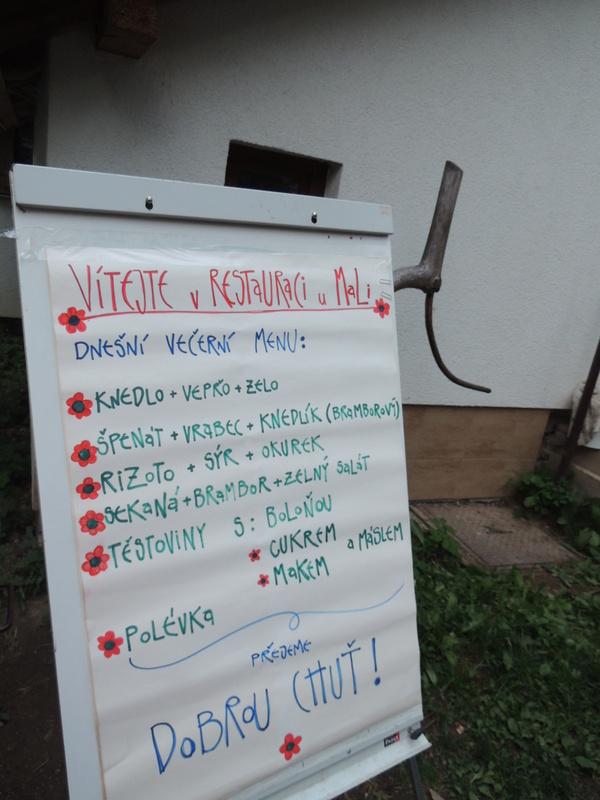 VÍTEJTE V RESTAURACI U MALI
DNEŠNÍ VEČERNÍ MENU:
KNEDLO + VEPŘO + ZELO
ŠPENÁT + VRABEC + KNEDLÍK (BRAMBOROVÝ)
RIZOTO + SÝR + OKUREK
SEKANÁ + BRAMBOR + ZELNÝ SALÁT
TĚSTOVINY S: BOLOŇOU
CUKREM a MÁSLEM
MAKEM
POLÉVKA
PŘEJEME
DOBROU CHUŤ!